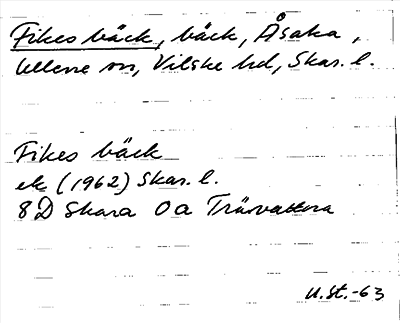 Fikes bäck, bäck, Åsaka,
Ullene sn, Vilske hd, Skar. l.
Fikes bäck
ek (1962) Skar. l.
8D Skara 0a Trävattna
U. St. -63